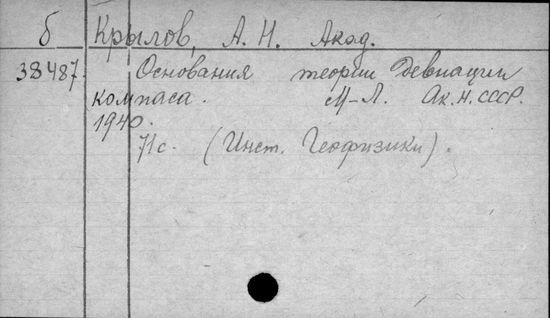 б Крылов, А. Н. Акад.
38487. Основания теории девиации
компаса. М-Л. Ак. Н. СССР.
1940.
71с. (Инст. Геофизики).